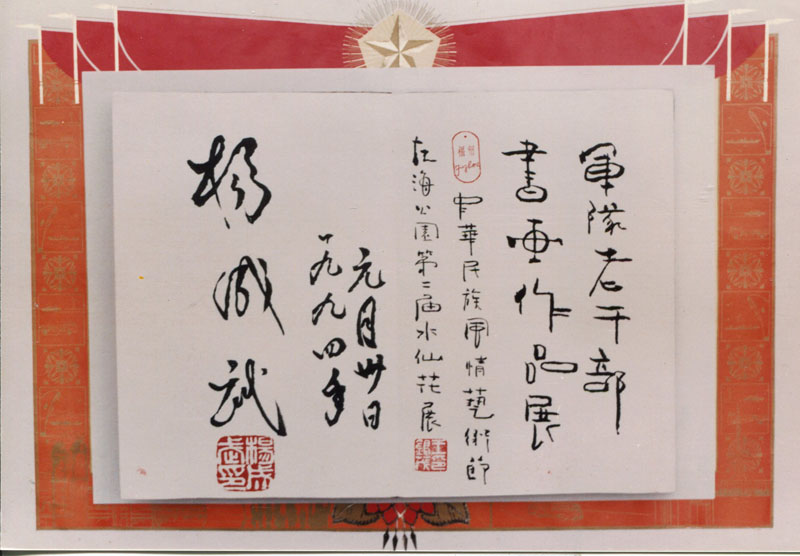 軍隊老干部
書画作品展
中華民族風情藝術節
北海公園第二届水仙花展
元月卅日
一九九四年
楊成武
楊成武印